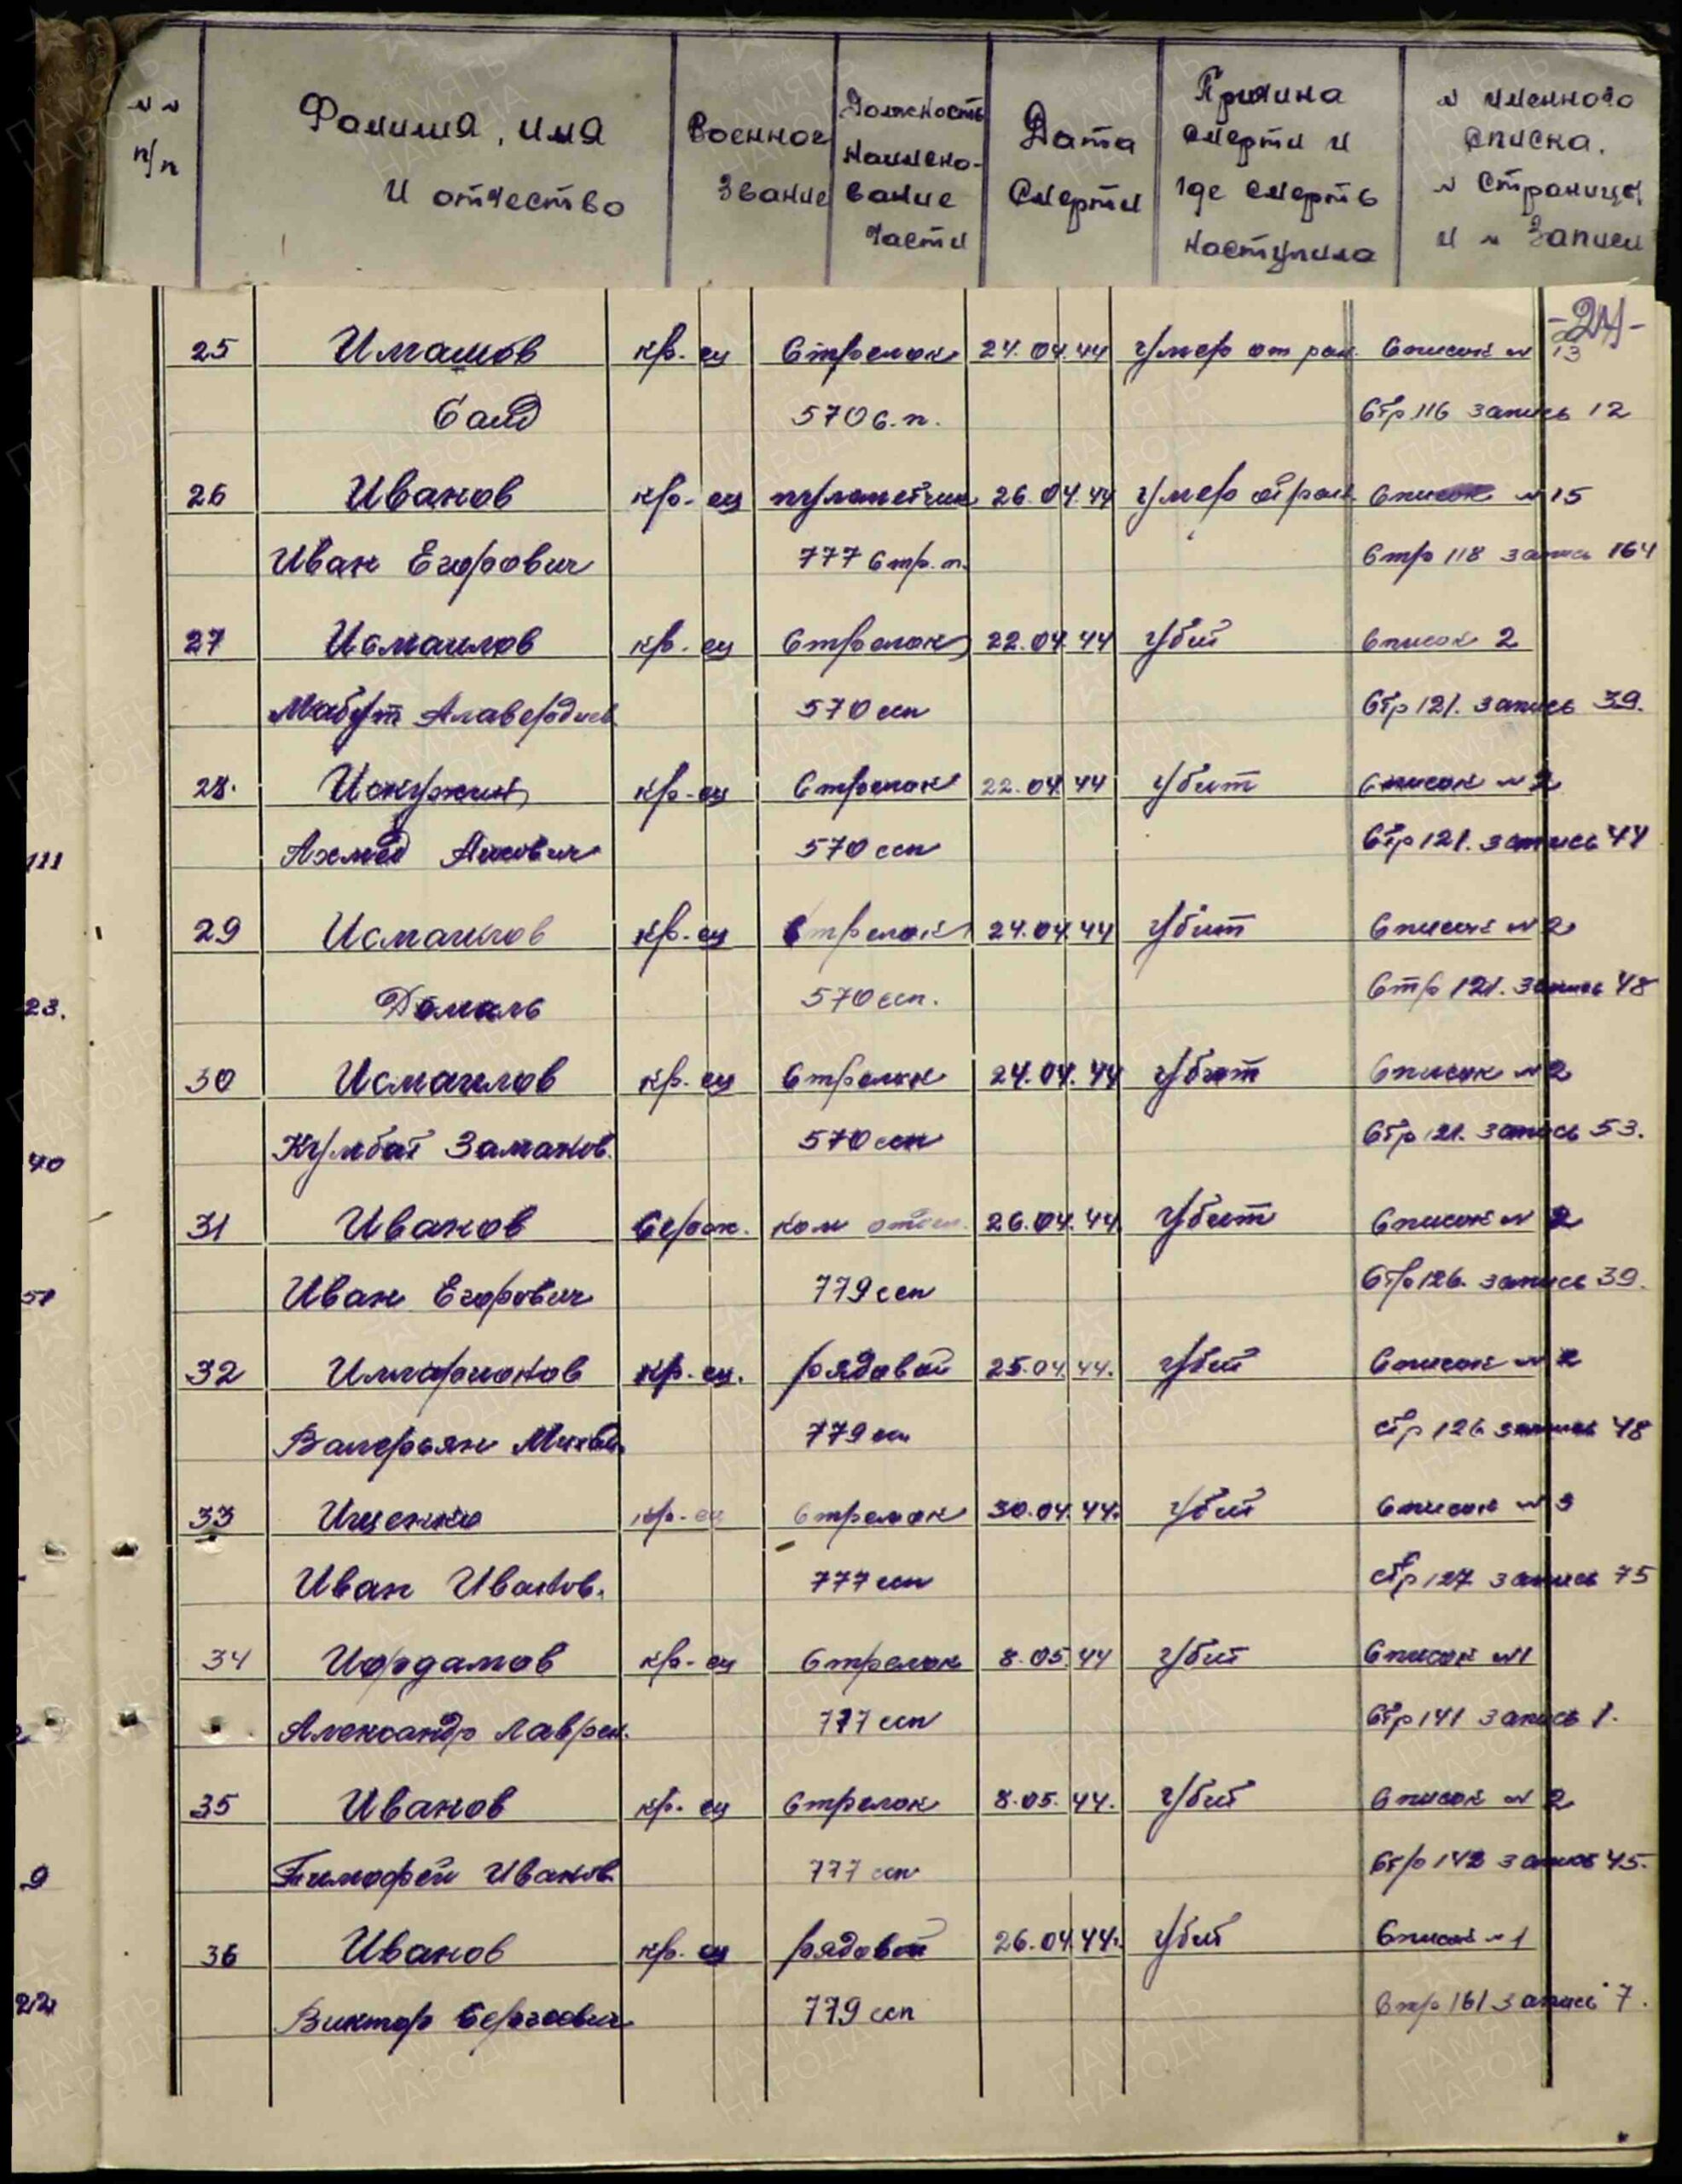 № № п/п
Фамилия, имя и отчество
Военное звание
Должность наименование части
Дата смерти
Причина смерти и где смерть наступила
№ именного списка. № страницы и № записи
-24-
25 Имашов кр-ец Стрелок 24.04.44 умер от ран Список № 13
Саид 570 с.п. Стр 116 запись 12
26 Иванов кр-ец пулеметчик 26.04.44 умер от ран Список № 15
Иван Егорович 777 Стр.п. Стр 118 запись 164
27 Исмаилов кр-ец Стрелок 22.04.44 убит Список 2
Алавердиев 570 ссп Стр 121. запись 39.
28. кр-ец Стрелок 22.04.44 убит Список № 2
Ахмед 570 ссп Стр 121. запись 44
29 Исмаилов кр-ец Стрелок 24.04.44 убит Список № 2
570 ссп. Стр 121. запись 48
30 Исмаилов кр-ец Стрелок 24.04.44 убит Список № 2
Заманов. 570 ссп Стр 121. запись 53.
31 Иванов Сержан. ком отдел. 26.04.44. убит Список № 2
Иван Егорович 779 ссп Стр 126. запись 39.
32 кр-ец. рядовой 25.04.44. убит Список № 2
Валерьян Михай. 779 ссп стр 126 запись 48
33 Ищенко кр-ец Стрелок 30.04.44. убит Список № 3
Иван Иванов. 777 ссп стр 127 запись 75
34 кр-ец Стрелок 8.05.44 убит Список № 1
Александр Лаврен. 777 ссп Стр 141 запись 1.
35 Иванов кр-ец Стрелок 8.05.44. убит Список № 2
Тимофей Иванов. 777 ссп Стр 142 запись 45.
36 Иванов кр-ец рядовой 26.04.44. убит Список № 1
Виктор Сергеевич 779 ссп Стр 161 запись 7.
111
23.
40
51
9
22
ПАМЯТЬ НАРОДА